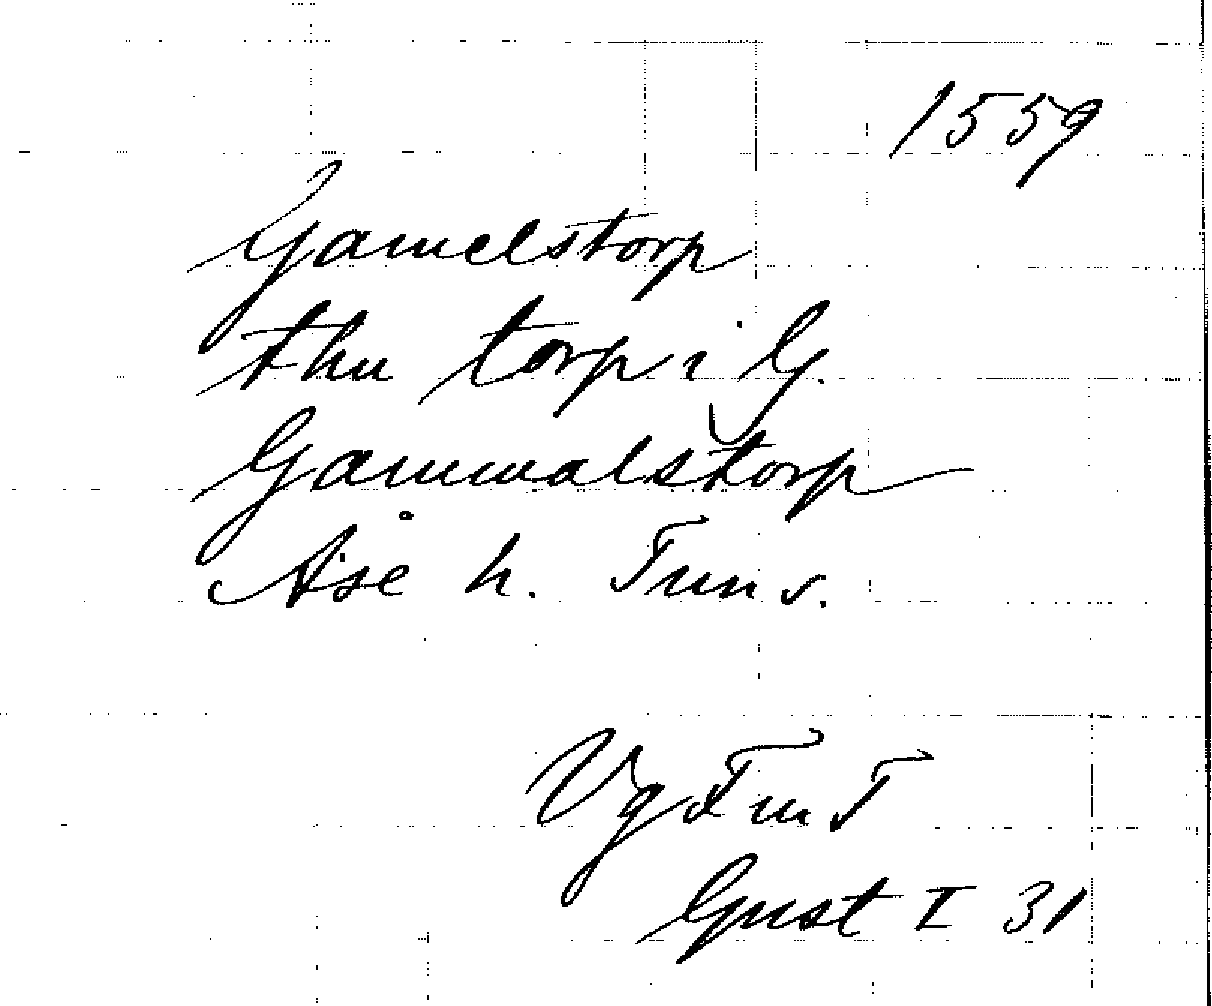 1559
Gamelstorp
thu torp i G.
Gammalstorp
Åse h. Tun s.
Vg F m T
Gust I 31